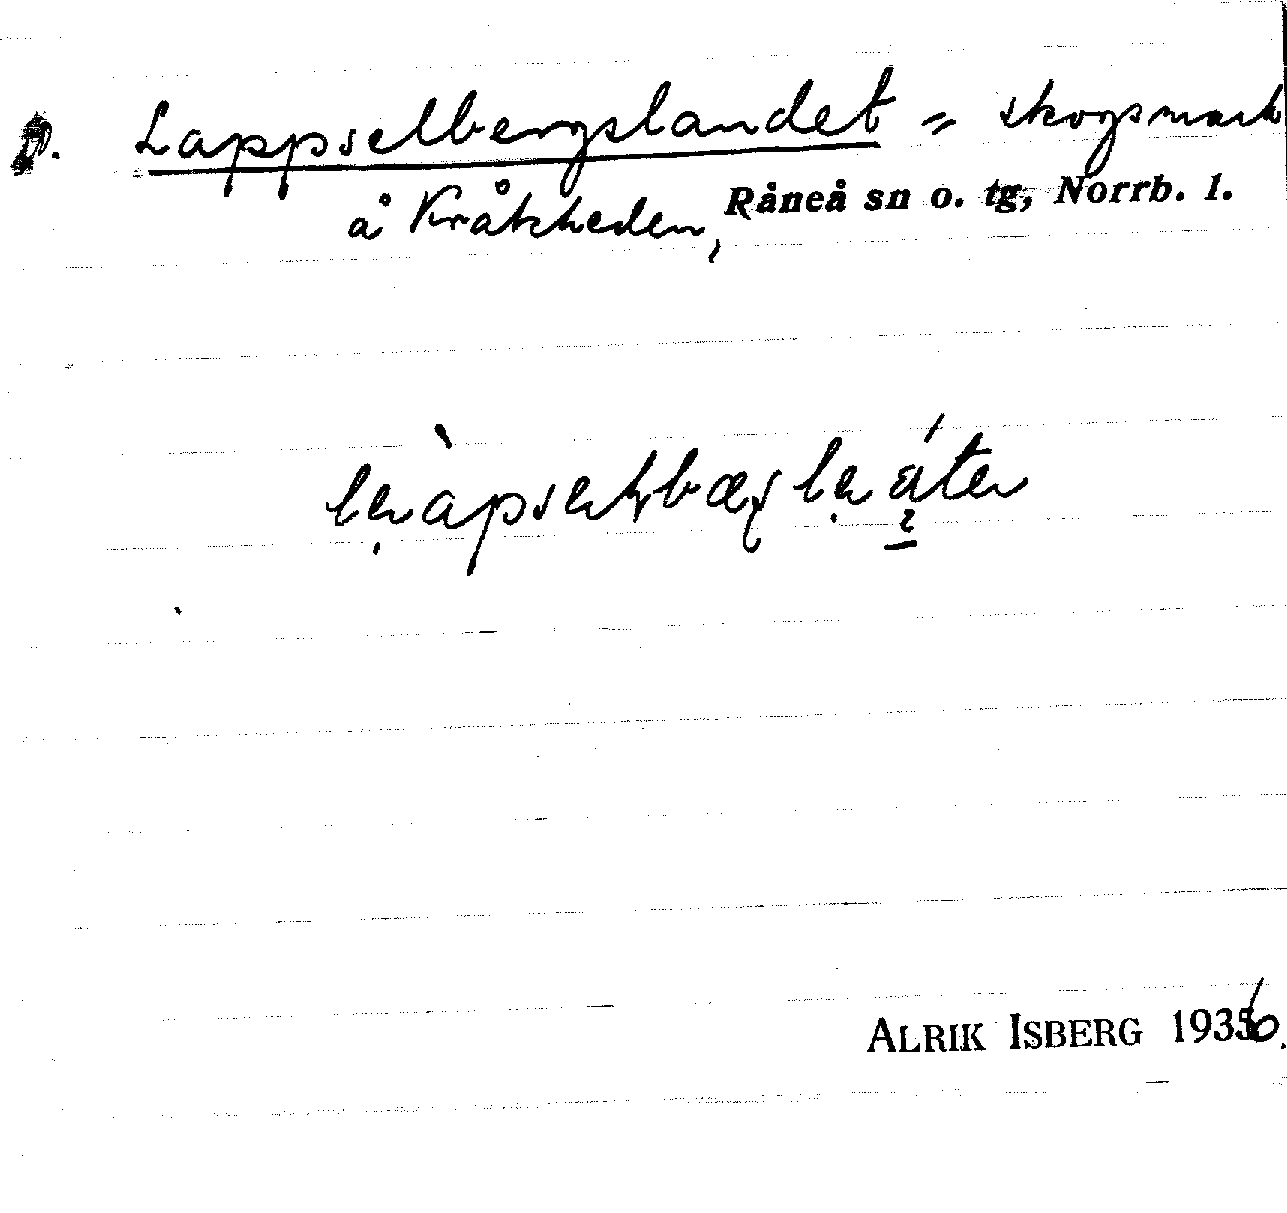 Lappselbergslandet = skogsmark
å Kråkheden, Råneå sn o. tg, Norrb. l.
ALRIK ISBERG 1936.